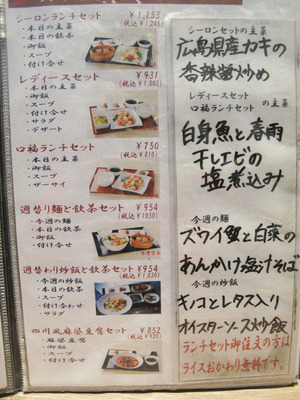 シーロンランチセット ¥1,153
(税込¥1,245)
・本日の主菜
・本日の飲茶
・御飯
・スープ
・付け合せ
・デザート
レディースセット ¥931
(税込¥1,005)
・本日の主菜
・御飯
・スープ
・付け合わせ
・サラダ
・デザート
口福ランチセット ¥750
(税込¥810)
・本日の主菜
・御飯
・スープ
・ザーサイ
週替り麺と飲茶セット ¥954
(税込¥1030)
・今週の麺
・本日の飲茶
・御飯
・付け合わせ
週替わり炒飯と飲茶セット ¥954
(税込¥1030)
・今週の炒飯
・本日の飲茶
・スープ
・付け合わせ
四川風麻婆豆腐セット ¥852
(税込¥920)
・麻婆豆腐
・御飯
・スープ
・付け合せ
シーロンセットの主菜
広島県産カキの
香辣醤炒め
レディースセット
口福ランチセットの主菜
白身魚と春雨
干しエビの
塩煮込み
今週の麺
ズワイ蟹と白菜の
あんかけ塩汁そば
今週の炒飯
キノコとレタス入り
オイスターソース炒飯
ランチセット御注文の方は
ライスおかわり無料です。